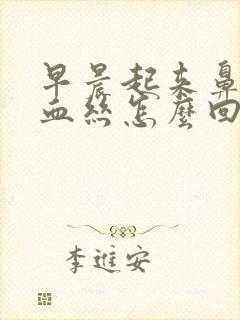 早晨起来鼻
血丝怎麽回
李進安